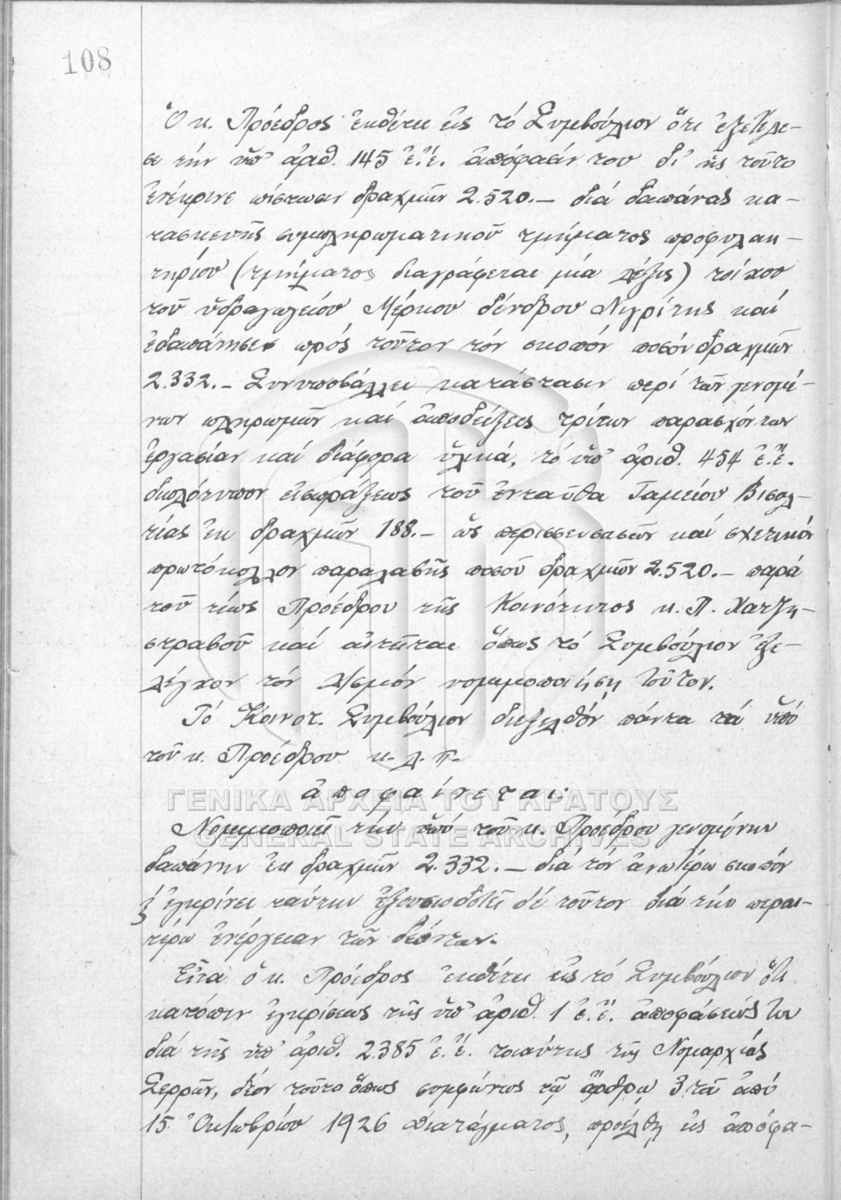 108
Ὁ κ. Πρόεδρος ἐκθέτει εἰς τό Συμβούλιον ὅτι ἐξετέλε-
σε τήν ὑπ' ἀριθ. 145 ἐ.ἔ. ἀπόφασίν του δι' ἧς τοῦτο
ἐνέκρινε πίστωσιν δραχμῶν 2.520.— διά δαπάνας κα-
τασκευῆς συμπληρωματικοῦ τμήματος προφυλακ-
τηρίου (τμήματος διαγράφεται μία λέξις) τοίχου
τοῦ ὑδραγωγείου Μέρκου δένδρου Νιγρίτης καί
ἐδαπάνησεν πρός τοῦτον τόν σκοπόν ποσόν δραχμῶν
2.332.— Συνυποβάλλει κατάστασιν περί τῶν γενομέ-
νων πληρωμῶν καί ἀποδείξεις τρίτων παρασχόντων
ἐργασίαν καί διάφορα ὑλικά, τό ὑπ' ἀριθ. 454 ἐ.ἔ.
διπλότυπον εἰσπράξεως τοῦ ἐνταῦθα Ταμείου Βισαλ-
τίας ἐκ δραχμῶν 188.— ὡς περισσευσασῶν καί σχετικόν
πρωτόκολλον παραλαβῆς ποσοῦ δραχμῶν 2.520.— παρά
τοῦ τέως Προέδρου τῆς Κοινότητος κ. Π. Χατζη-
στραβοῦ καί αἰτῆται ὅπως τό Συμβούλιον ἐξε-
λέγχον τόν λ/σμόν νομιμοποιήσῃ τοῦτον.
Τό Κοινοτ. Συμβούλιον διεξελθόν πάντα τά ὑπό
τοῦ κ. Προέδρου κ.λ.π.
ἀποφαίνεται:
ΓΕΝΙΚΑ ΑΡΧΕΙΑ ΤΟΥ ΚΡΑΤΟΥΣ
GENERAL STATE ARCHIVES
Νομιμοποιεῖ τήν ὑπό τοῦ κ. Προέδρου γενομένην
δαπάνην ἐκ δραχμῶν 2.332.— διά τόν ἀνωτέρω σκοπόν
ἐγκρίνει ταύτην ἐξουσιοδοτεῖ δέ τοῦτον διά τήν περαι-
τέρω ἐνέργειαν τῶν δεόντων.
Εἶτα ὁ κ. Πρόεδρος ἐκθέτει εἰς τό Συμβούλιον ὅτι
κατόπιν ἐγκρίσεως τῆς ὑπ' ἀριθ. 1 ἐ.ἔ. ἀποφάσεώς του
διά τῆς ὑπ' ἀριθ. 2385 ἐ.ἔ. τοιαύτης τῆς Νομαρχίας
Σερρῶν, δέον τοῦτο ὅπως συμφώνως τῷ ἄρθρῳ 3 τοῦ ἀπό
15 Ὀκτωβρίου 1926 Διατάγματος, προέλθῃ εἰς ἀπόφα-